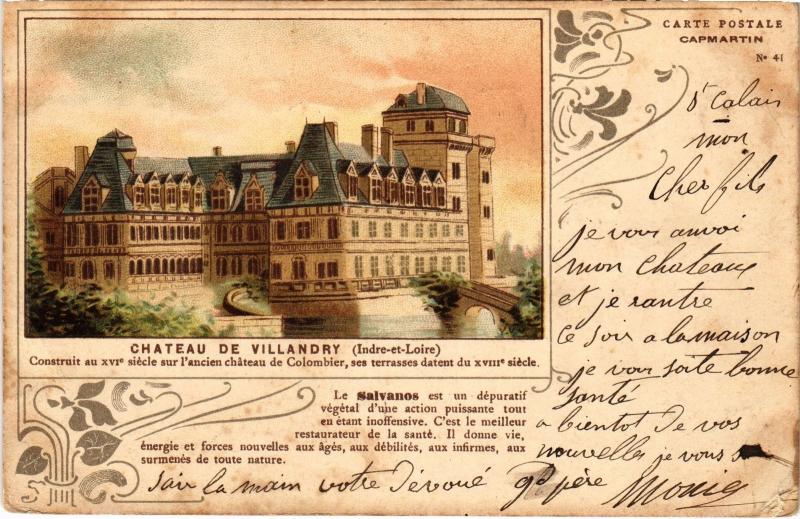 CARTE POSTALE
CAPMARTIN
No 41
CHATEAU DE VILLANDRY (Indre-et-Loire)
Construit au XVIe siècle sur l'ancien château de Colombier, ses terrasses datent du XVIIIe siècle.
Le Salvanos est un dépuratif
végétal d'une action puissante tout
en étant inoffensive. C'est le meilleur
restaurateur de la santé. Il donne vie,
énergie et forces nouvelles aux âgés, aux débilités, aux infirmes, aux
surmenés de toute nature.
St Calais
mon
Cher fils
je vous anvoi
mon chateaux
et je rantre
ce soir a la maison
je vou saite bonne
santé
a bientot de vos
nouvelles je vous
sair la main votre dévoué gd père